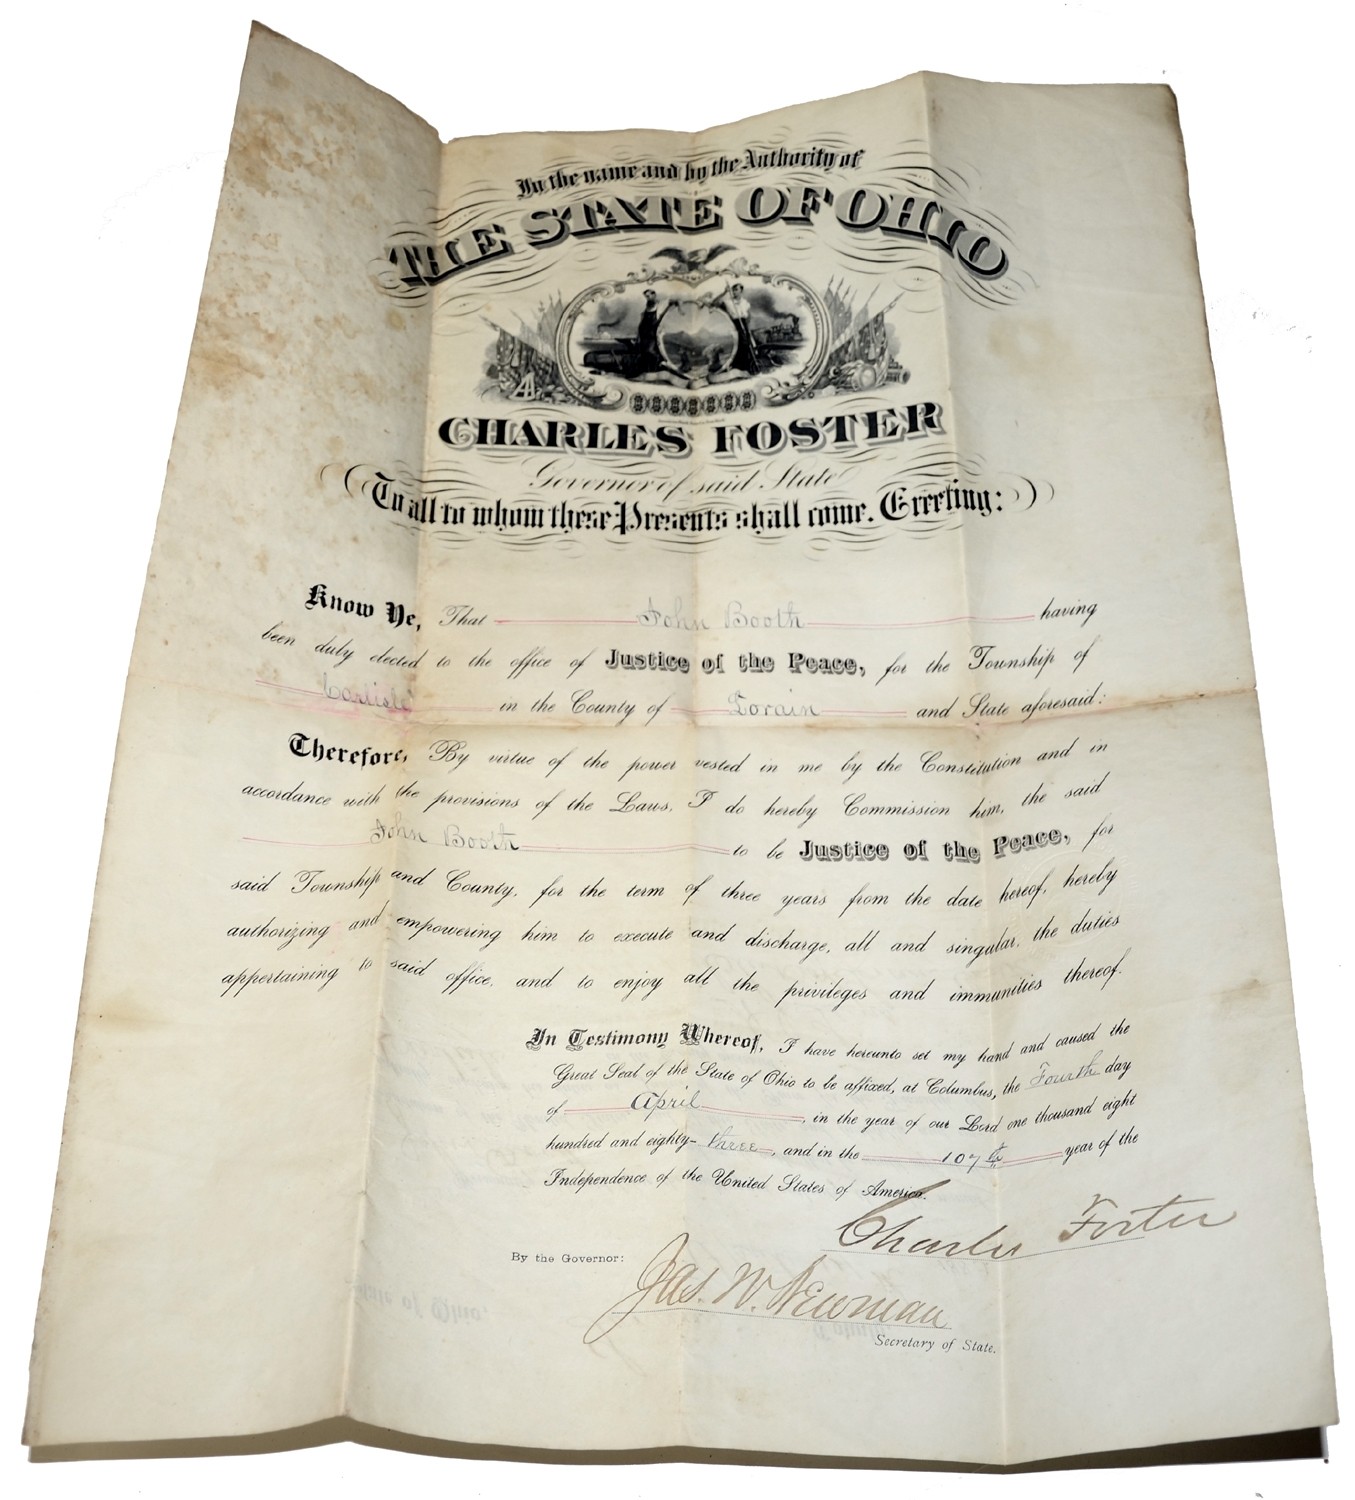 In the name and by the Authority of
THE STATE OF OHIO
CHARLES FOSTER
Governor of said State
To all to whom these Presents shall come. Greeting:
Know Ye, That John Booth having
been duly elected to the office of Justice of the Peace, for the Township of
Carlisle in the County of Lorain and State aforesaid:
Therefore, By virtue of the power vested in me by the Constitution and in
accordance with the provisions of the Laws, I do hereby Commission him, the said
John Booth to be Justice of the Peace, for
said Township and County, for the term of three years from the date hereof, hereby
authorizing and empowering him to execute and discharge, all and singular, the duties
appertaining to said office, and to enjoy all the privileges and immunities thereof.
In Testimony Whereof, I have hereunto set my hand and caused the
Great Seal of the State of Ohio to be affixed, at Columbus, the Fourth day
of April, in the year of our Lord one thousand eight
hundred and eighty-three, and in the 107th year of the
Independence of the United States of America.
Charles Foster
By the Governor:
Jas. W. Newman
Secretary of State.